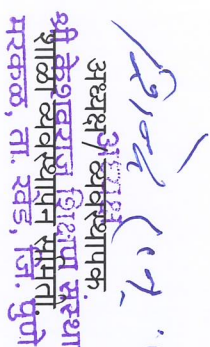 अध्यक्ष / व्यवस्थापक
अध्यक्ष
शाळा व्यवस्थापन समिती
श्री केशवराज शिक्षण संस्था
मरकळ, ता. खेड, जि. पुणे